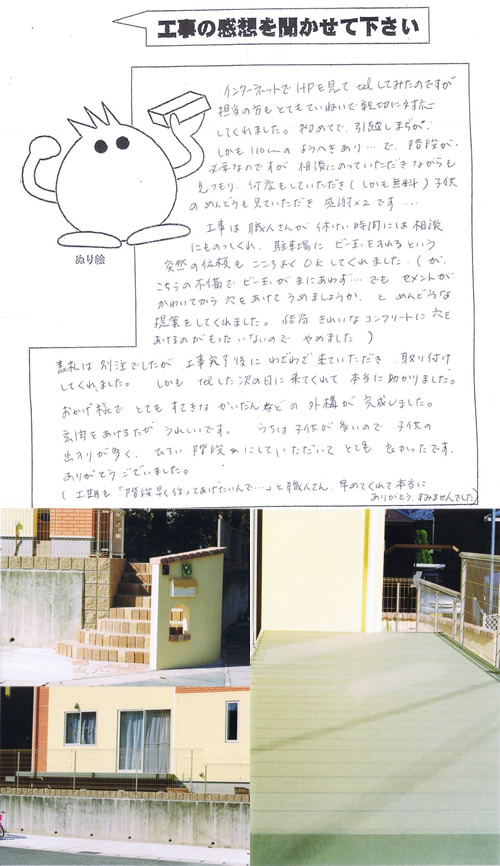 工事の感想を聞かせて下さい
インターネットでHPを見てtelしてみたのですが
担当の方もとてもていねいで親切に対応
してくれました。初めてで、引越しまぢか、
しかも110cmのようへきあり…で、階段が
必要なのですが相談にのっていただきながらも
見つもり、何度もしていただき(しかも無料)子供
のめんどうも見ていただき 感謝×2です‥‥
工事は職人さんが休けい時間には相談
にものってくれ、駐車場にビー玉を入れるという
突然の依頼もこころよくOKしてくれました。(が、
こちらの不備でビー玉がまにあわず…でもセメントが
かわいてから穴をあけてうめましょうか、とめんどうな
提案をしてくれました。結局きれいなコンクリートに穴を
あけるのがもったいないのでやめました)
表札は別注でしたが工事完了後にわざわざ来ていただき、取り付け
してくれました。しかもtelした次の日に来てくれて本当に助かりました。
おかげ様でとてもすてきなかいだんなどの外構が完成しました。
玄関をあけるたびうれしいです。うちは子供が多いので子供の
出入りが多く、ひろい階段にしていただいてとても良かったです。
ありがとうございました。
(工期も「階段早く作ってあげたいんで…」と職人さん、早めてくれて本当に
ありがとう、すみませんでした)
ぬり絵